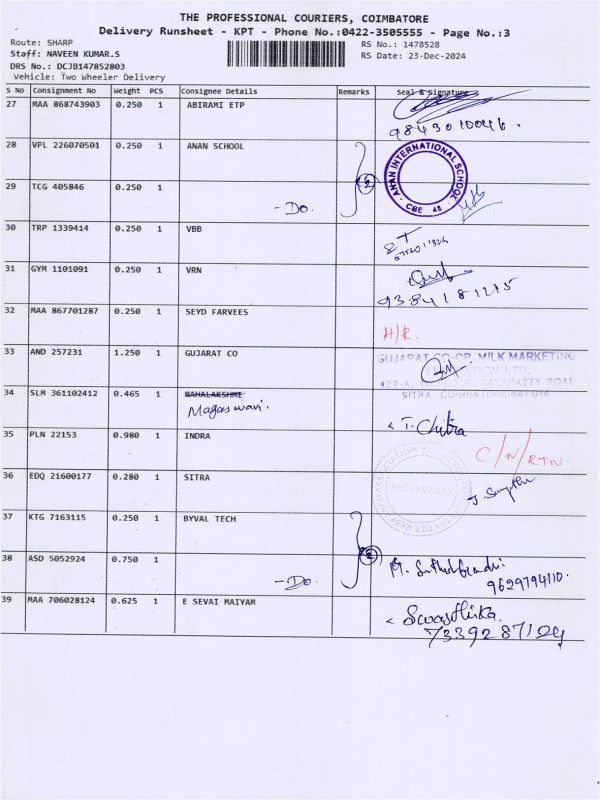 THE PROFESSIONAL COURIERS, COIMBATORE
Delivery Runsheet - KPT - Phone No.:0422-3505555 - Page No.:3
Route: SHARP
RS No.: 1478528
Staff: NAVEEN KUMAR.S
RS Date: 23-Dec-2024
DRS No.: DCJB147852803
Vehicle: Two Wheeler Delivery
S No Consignment No Weight PCS Consignee Details Remarks Seal & Signature
27 MAA 868743903 0.250 1 ABIRAMI ETP
9843010046.
28 VPL 226070501 0.250 1 ANAN SCHOOL
ANAN INTERNATIONAL SCHOOL
CBE 48
2
29 TCG 405846 0.250 1 -Do.
30 TRP 1339414 0.250 1 VBB
31 GYM 1101091 0.250 1 VRN
9384181215
32 MAA 867701287 0.250 1 SEYD FARVEES
H/R.
33 AND 257231 1.250 1 GUJARAT CO
GUJARAT CO-OP. MILK MARKETING
34 SLM 361102412 0.465 1 MAHALAKSHMI
Mageswari.
T. Chitra
35 PLN 22153 0.980 1 INDRA
C/N/RTN.
36 EDQ 21600177 0.280 1 SITRA
37 KTG 7163115 0.250 1 BYVAL TECH
2
38 ASD 5052924 0.750 1 -Do.
9629794110.
39 MAA 706028124 0.625 1 E SEVAI MAIYAM
Swasthika
7339287109